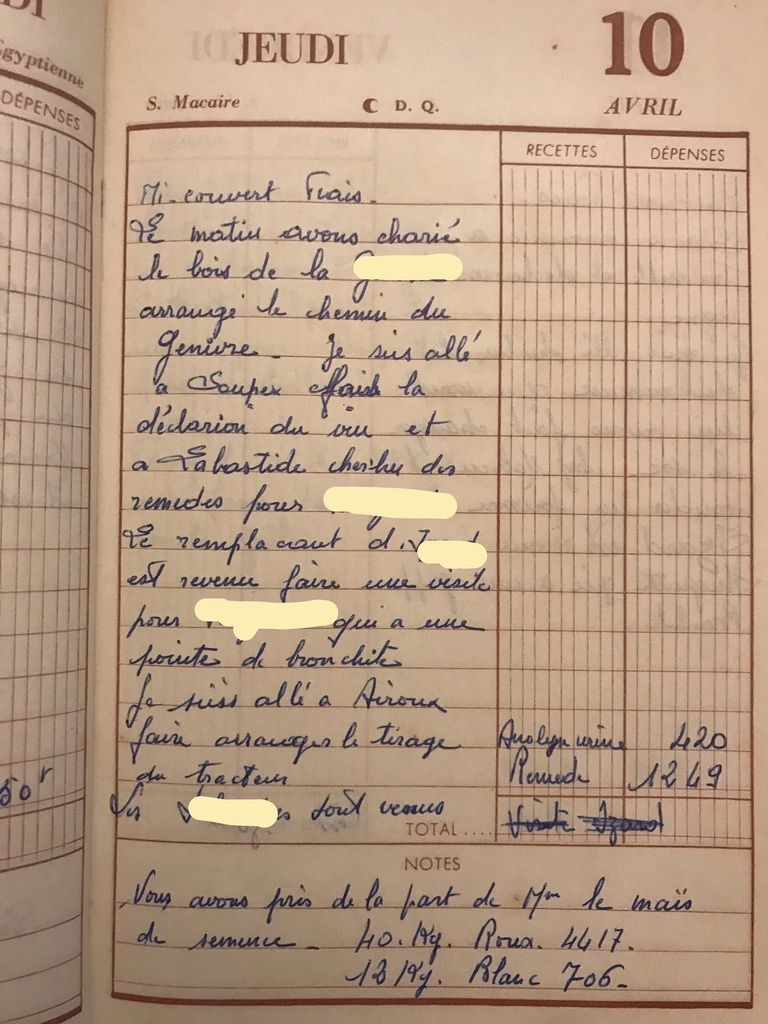 Egyptienne
DÉPENSES
50 F
JEUDI
10
S. Macaire
D. Q.
AVRIL
RECETTES
DÉPENSES
Mi-couvert Frais.
Le matin avons charié
le bois de la
arrangé le chemin du
Genièvre. Je suis allé
a Soupex la
déclarion du vin et
a Labastide cherher des
remedes pour
Le remplacant d
est revenu faire une visite
pour qui a une
pointe de bronchite
Je suis allé a Airoux
faire arranger le tirage
Analyse urine 420
du tracteur
Remede 1249
Les sont venus
TOTAL ....
Visite
NOTES
Nous avons pris de la part de Mm le maïs
de semence - 40. Kg. Roux. 4417.
12 Kg. Blanc 706-